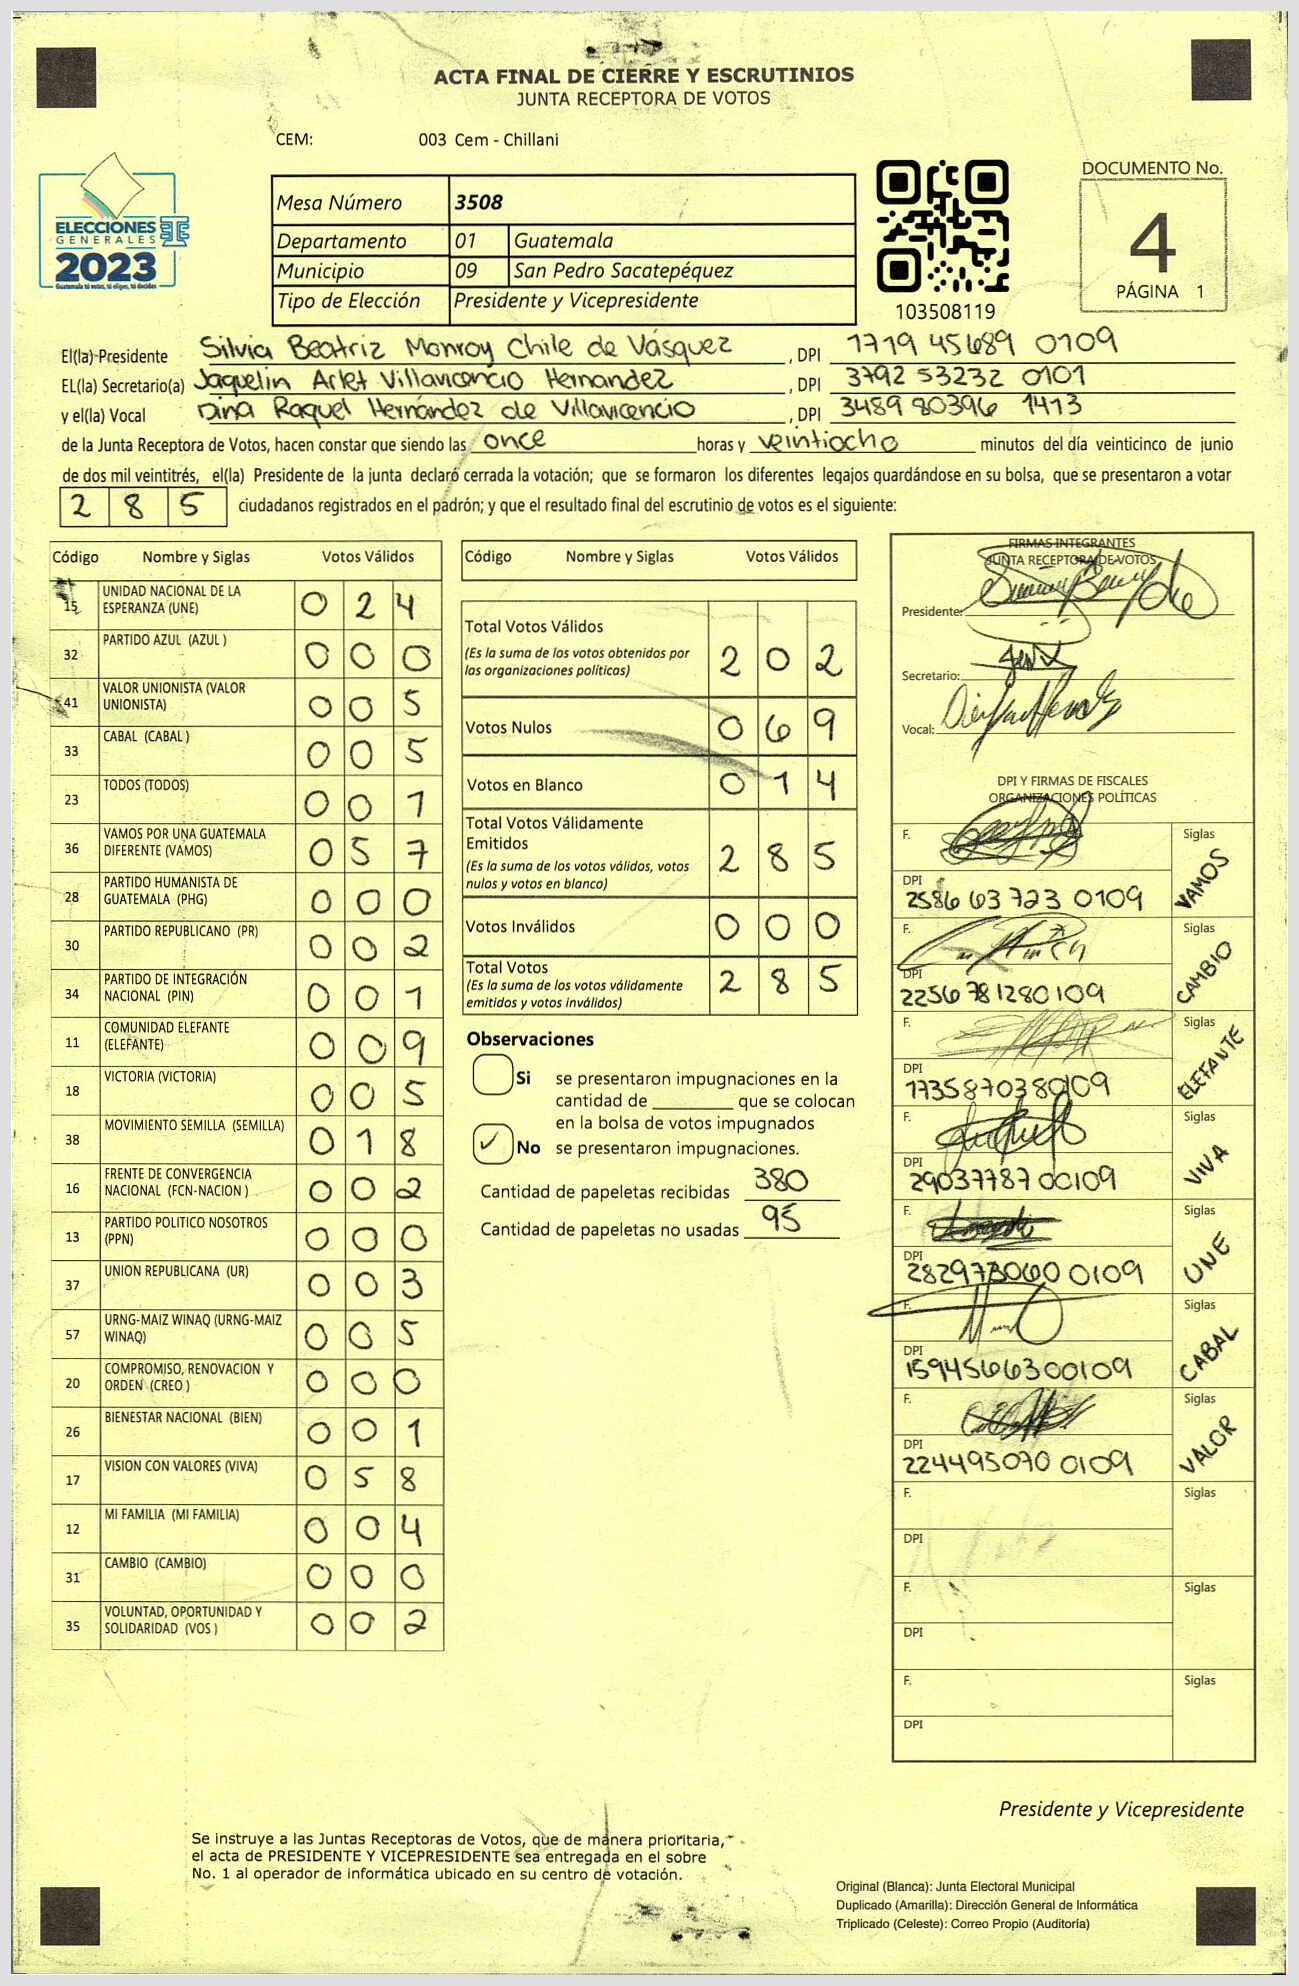 ACTA FINAL DE CIERRE Y ESCRUTINIOS
JUNTA RECEPTORA DE VOTOS
CEM: 003 Cem - Chillani
ELECCIONES
GENERALES
2023
Guatemala tú votas, tú eliges, tú decides
Mesa Número 3508
Departamento 01 Guatemala
Municipio 09 San Pedro Sacatepéquez
Tipo de Elección Presidente y Vicepresidente
103508119
DOCUMENTO No.
4
PÁGINA 1
El(la) Presidente Silvia Beatriz Monroy Chile de Vásquez, DPI 1719 45689 0109
EL(la) Secretario(a) Jaquelin Arlet Villavicencio Hernandez, DPI 3792 53232 0101
y el(la) Vocal Dina Raquel Hernández de Villavicencio, DPI 3489 80396 1413
de la Junta Receptora de Votos, hacen constar que siendo las once horas y veintiocho minutos del día veinticinco de junio
de dos mil veintitrés, el(la) Presidente de la junta declaró cerrada la votación; que se formaron los diferentes legajos guardándose en su bolsa, que se presentaron a votar
285 ciudadanos registrados en el padrón; y que el resultado final del escrutinio de votos es el siguiente:
Código Nombre y Siglas Votos Válidos
15 UNIDAD NACIONAL DE LA ESPERANZA (UNE) 0 2 4
32 PARTIDO AZUL (AZUL ) 0 0 0
41 VALOR UNIONISTA (VALOR UNIONISTA) 0 0 5
33 CABAL (CABAL ) 0 0 5
23 TODOS (TODOS) 0 0 1
36 VAMOS POR UNA GUATEMALA DIFERENTE (VAMOS) 0 5 7
28 PARTIDO HUMANISTA DE GUATEMALA (PHG) 0 0 0
30 PARTIDO REPUBLICANO (PR) 0 0 2
34 PARTIDO DE INTEGRACIÓN NACIONAL (PIN) 0 0 1
11 COMUNIDAD ELEFANTE (ELEFANTE) 0 0 9
18 VICTORIA (VICTORIA) 0 0 5
38 MOVIMIENTO SEMILLA (SEMILLA) 0 1 8
16 FRENTE DE CONVERGENCIA NACIONAL (FCN-NACION ) 0 0 2
13 PARTIDO POLITICO NOSOTROS (PPN) 0 0 0
37 UNION REPUBLICANA (UR) 0 0 3
57 URNG-MAIZ WINAQ (URNG-MAIZ WINAQ) 0 0 5
20 COMPROMISO, RENOVACION Y ORDEN (CREO ) 0 0 0
26 BIENESTAR NACIONAL (BIEN) 0 0 1
17 VISION CON VALORES (VIVA) 0 5 8
12 MI FAMILIA (MI FAMILIA) 0 0 4
31 CAMBIO (CAMBIO) 0 0 0
35 VOLUNTAD, OPORTUNIDAD Y SOLIDARIDAD (VOS ) 0 0 2
Código Nombre y Siglas Votos Válidos
Total Votos Válidos 2 0 2
(Es la suma de los votos obtenidos por
las organizaciones políticas)
Votos Nulos 0 6 9
Votos en Blanco 0 1 4
Total Votos Válidamente
Emitidos 2 8 5
(Es la suma de los votos válidos, votos
nulos y votos en blanco)
Votos Inválidos 0 0 0
Total Votos 2 8 5
(Es la suma de los votos válidamente
emitidos y votos inválidos)
Observaciones
Si se presentaron impugnaciones en la
cantidad de ________ que se colocan
en la bolsa de votos impugnados
✓ No se presentaron impugnaciones.
Cantidad de papeletas recibidas 380
Cantidad de papeletas no usadas 95
FIRMAS INTEGRANTES
JUNTA RECEPTORA DE VOTOS
Presidente:
Secretario:
Vocal:
DPI Y FIRMAS DE FISCALES
ORGANIZACIONES POLÍTICAS
F. Siglas VAMOS
DPI 2586 63723 0109
F. Siglas CAMBIO
DPI 2256 78128 0109
F. Siglas ELEFANTE
DPI 1735870380109
F. Siglas VIVA
DPI 29037787 00109
F. Siglas UNE
DPI 282973060 0109
F. Siglas CABAL
DPI 1594566300109
F. Siglas VALOR
DPI 224495070 0109
F. Siglas
DPI
F. Siglas
DPI
F. Siglas
DPI
Presidente y Vicepresidente
Se instruye a las Juntas Receptoras de Votos, que de manera prioritaria,
el acta de PRESIDENTE Y VICEPRESIDENTE sea entregada en el sobre
No. 1 al operador de informática ubicado en su centro de votación.
Original (Blanca): Junta Electoral Municipal
Duplicado (Amarilla): Dirección General de Informática
Triplicado (Celeste): Correo Propio (Auditoría)